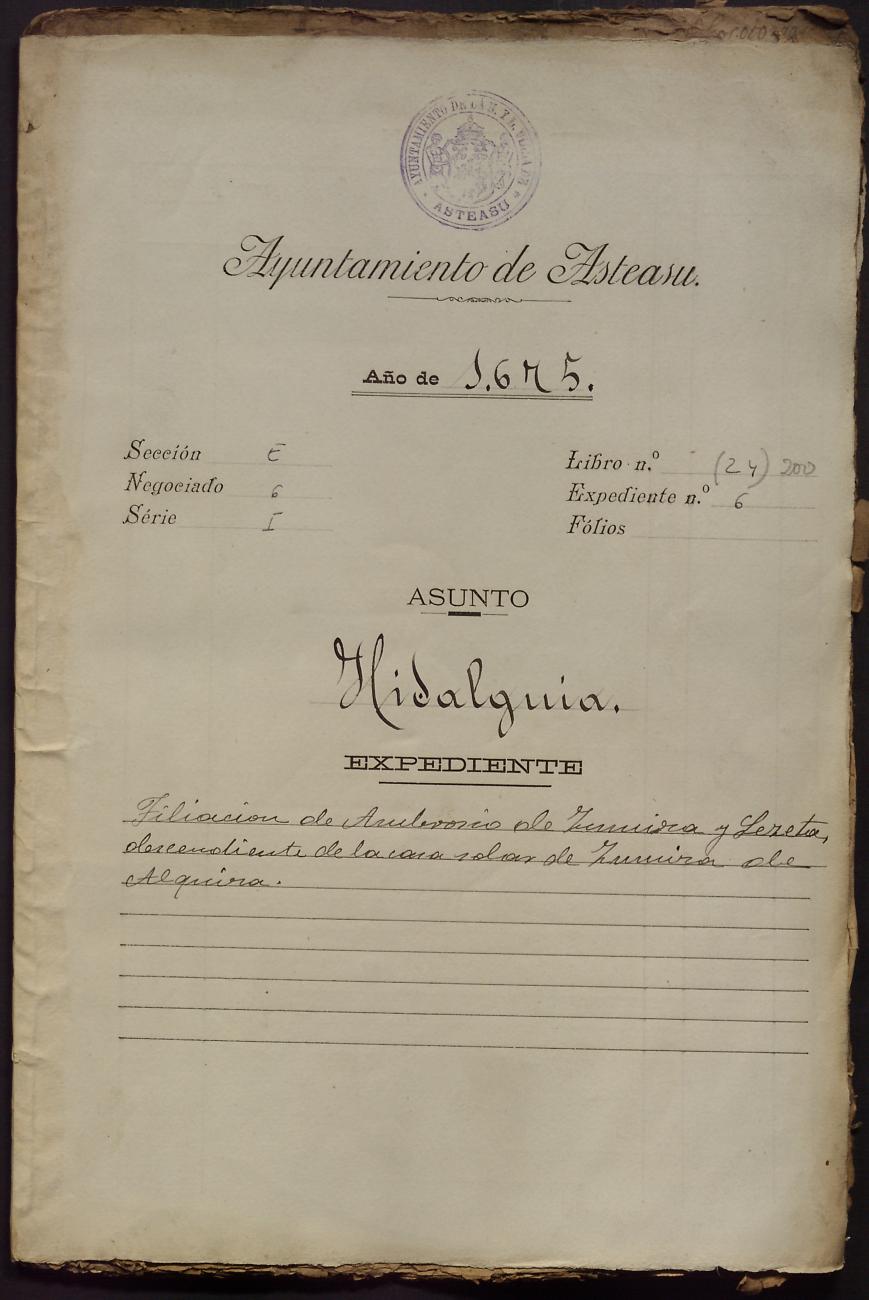 AYUNTAMIENTO DE LA N. Y L. VILLA DE
ASTEASU
Ayuntamiento de Asteasu.
Año de 1.675.
Sección E
Negociado 6
Série I
Libro n.º (24) 200
Expediente n.º 6
Fólios
ASUNTO
Hidalguia.
EXPEDIENTE
Filiacion de Ambrosio de Zumiza y Lezeta,
descendiente de la casa solar de Zumiza de
Alquiza.